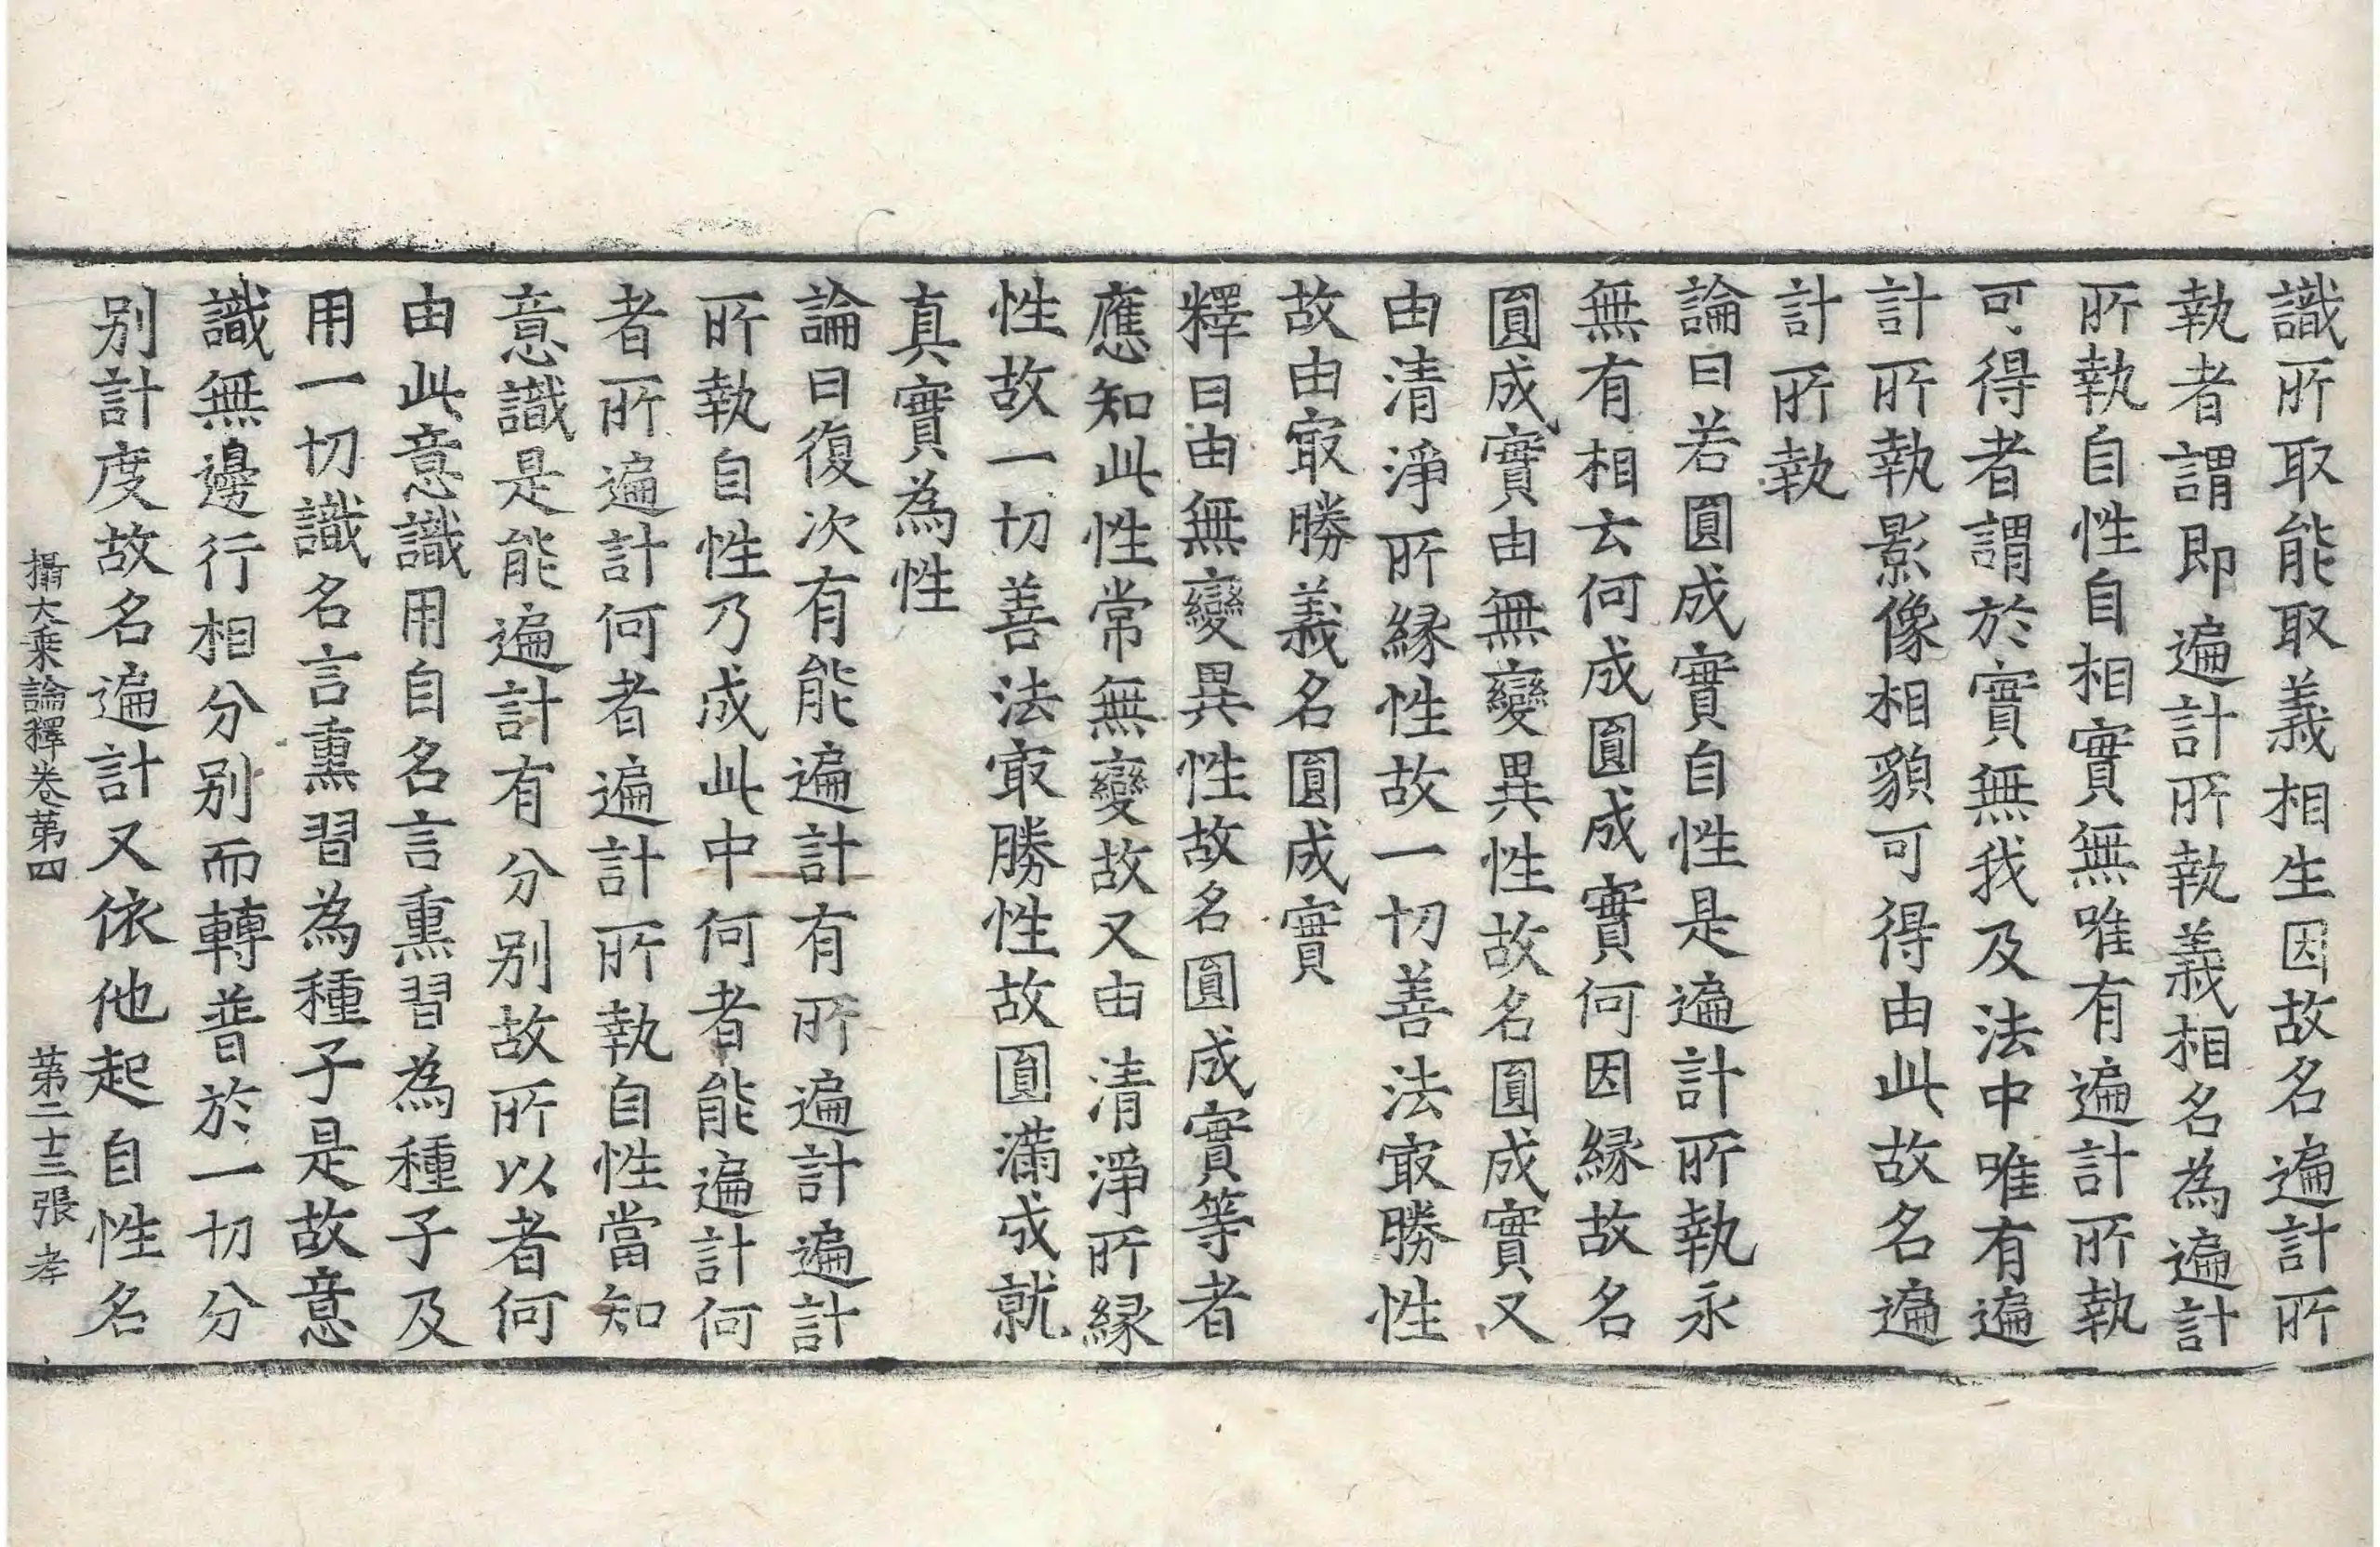 識所取能取義相生因故名遍計所
執者謂即遍計所執義相名為遍計
所執自性自相實無唯有遍計所執
可得者謂於實無我及法中唯有遍
計所執影像相貌可得由此故名遍
計所執
論曰若圓成實自性是遍計所執永
無有相云何成圓成實何因緣故名
圓成實由無變異性故名圓成實又
由清淨所緣性故一切善法冣勝性
故由冣勝義名圓成實
釋曰由無變異性故名圓成實等者
應知此性常無變故又由清淨所緣
性故一切善法冣勝性故圓滿成就
真實為性
論曰復次有能遍計有所遍計遍計
所執自性乃成此中何者能遍計何
者所遍計何者遍計所執自性當知
意識是能遍計有分別故所以者何
由此意識用自名言熏習為種子及
用一切識名言熏習為種子是故意
識無邊行相分別而轉普於一切分
別計度故名遍計又依他起自性名
攝大乘論釋卷第四　第二十三張　孝